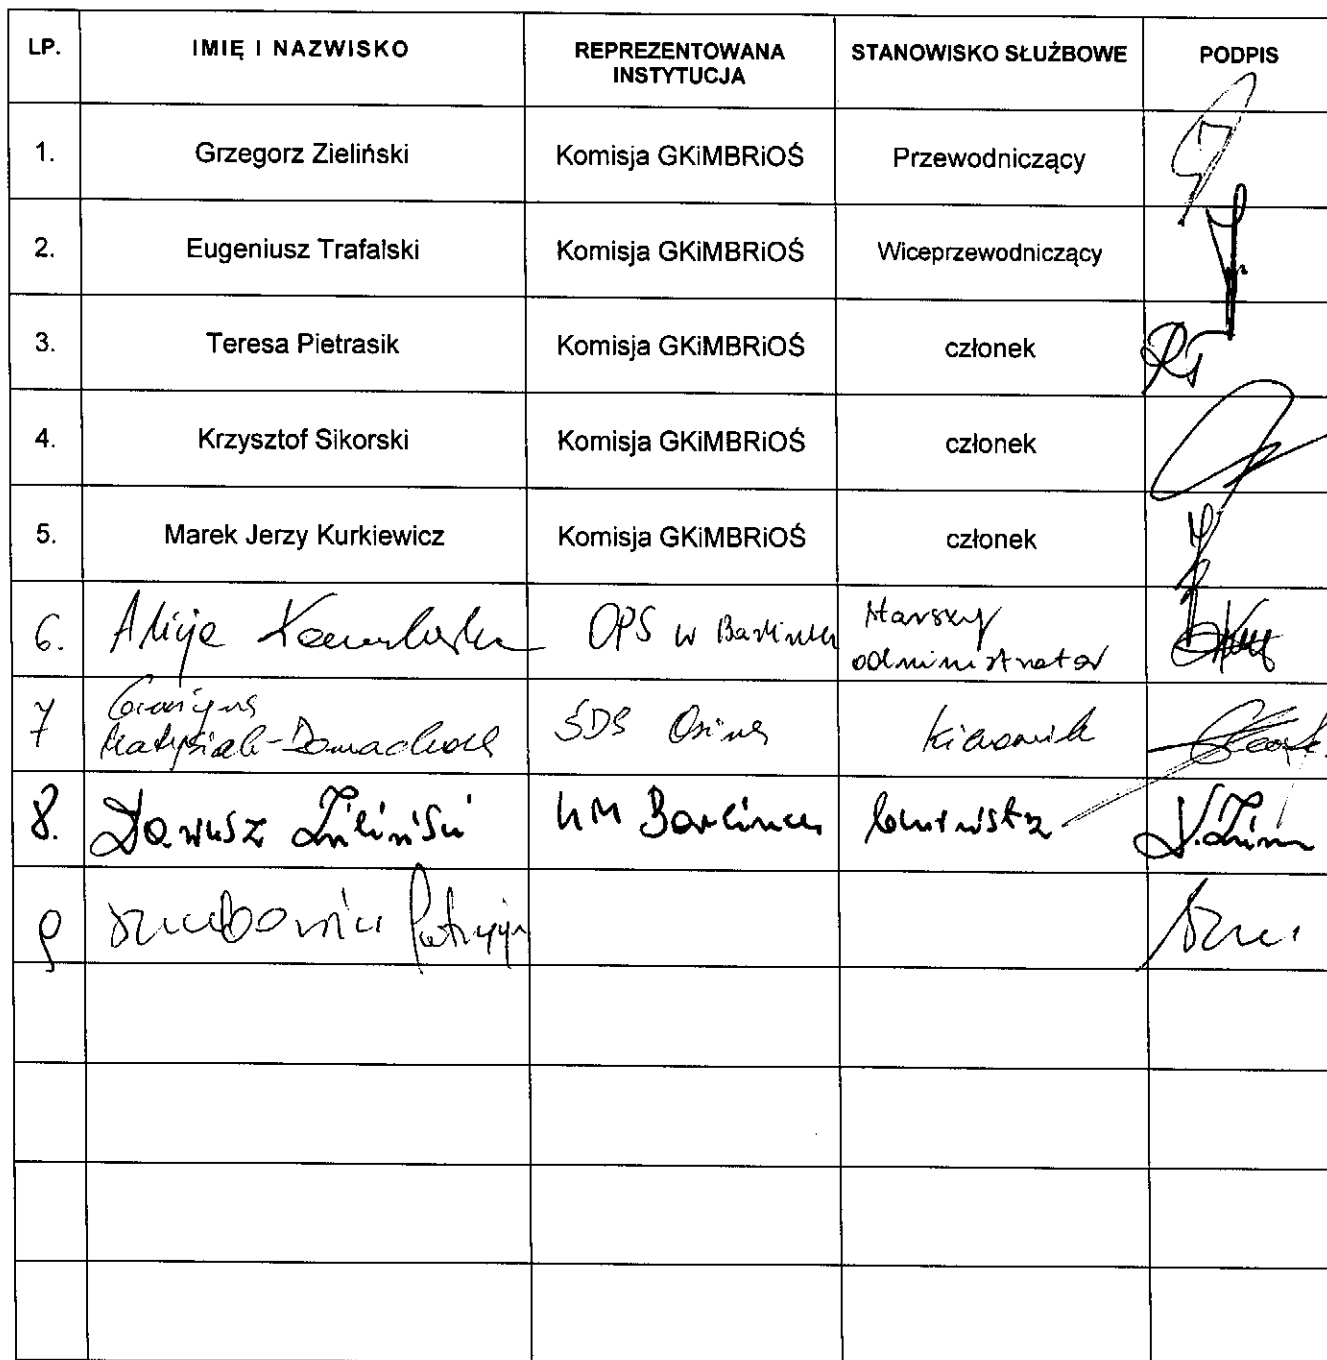 LP. IMIĘ I NAZWISKO REPREZENTOWANA INSTYTUCJA STANOWISKO SŁUŻBOWE PODPIS
1. Grzegorz Zieliński Komisja GKiMBRiOŚ Przewodniczący
2. Eugeniusz Trafalski Komisja GKiMBRiOŚ Wiceprzewodniczący
3. Teresa Pietrasik Komisja GKiMBRiOŚ członek
4. Krzysztof Sikorski Komisja GKiMBRiOŚ członek
5. Marek Jerzy Kurkiewicz Komisja GKiMBRiOŚ członek
6. Alicja OPS w Barlinku starszy
administrator
7 Grażyna
Matysiak-Domachowska ŚDS Osina kierownik
8. Dariusz Zieliński UM Barlinek burmistrz
9 Patrycja